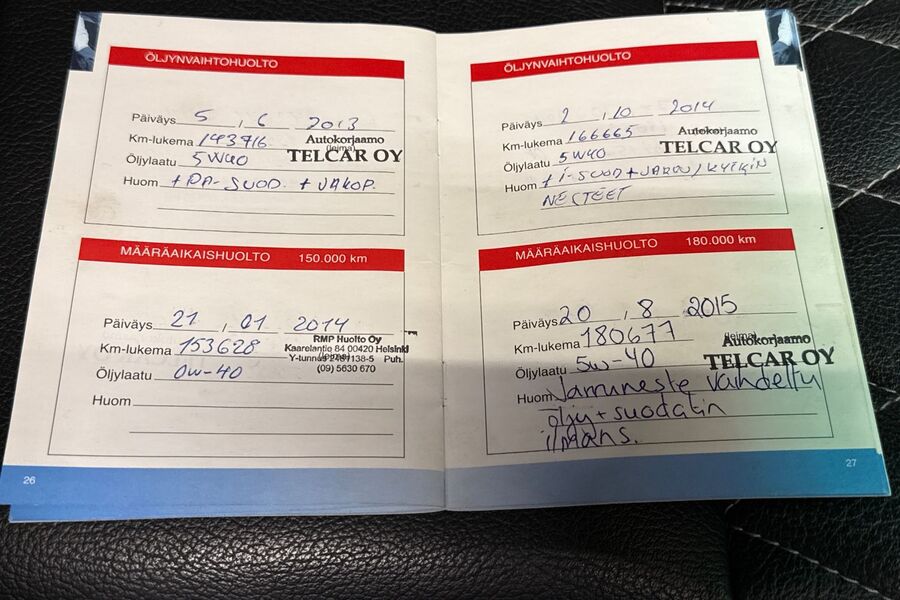 ÖLJYNVAIHTOHUOLTO
Päiväys 5 , 6 2013
Km-lukema 143716
Autokorjaamo
(leima)
TELCAR OY
Öljylaatu 5W40
Huom + PA-SUOD. + JAKOP.
MÄÄRÄAIKAISHUOLTO 150.000 km
Päiväys 21 , 01 2014
Km-lukema 153628
Öljylaatu 0w-40
Huom
RMP Huolto Oy
Kaarelantie 84 00420 Helsinki
Y-tunnus 2487138-5 Puh.
(09) 5630 670
26
ÖLJYNVAIHTOHUOLTO
Päiväys 2 , 10 2014
Km-lukema 166665
Autokorjaamo
TELCAR OY
Öljylaatu 5W40
Huom + i-SUOD + JARRU / KYTKIN
NESTEET
MÄÄRÄAIKAISHUOLTO 180.000 km
Päiväys 20 , 8 2015
Km-lukema 180677
(leima)
Autokorjaamo
TELCAR OY
Öljylaatu 5w-40
Huom Jarruneste vaihdettu
öljy + suodatin
ilmans.
27